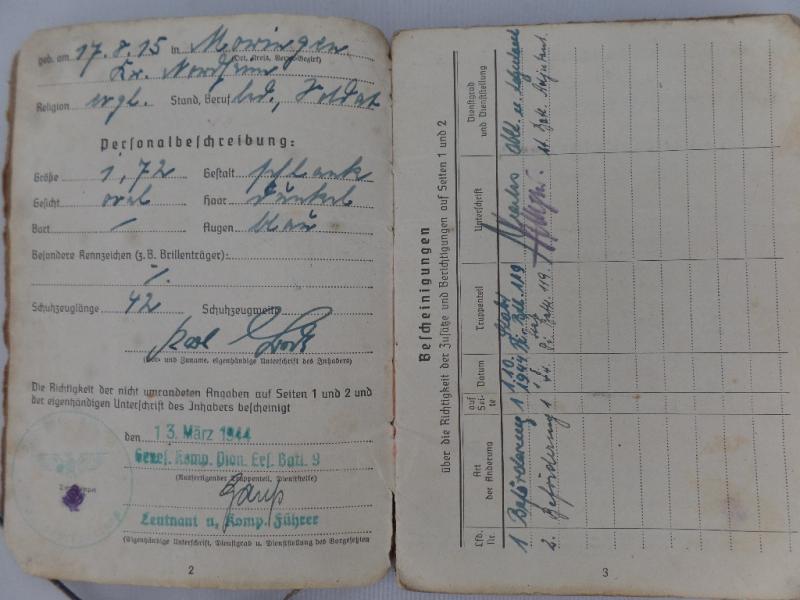 geb. am 17.8.15 in Moringen
(Ort, Kreis, Verw.-Bezirk)
Kr. Northeim
Religion evgl. Stand, Beruf led., Soldat
Personalbeschreibung:
Größe 1,72 Gestalt schlank
Gesicht oval Haar dunkel
Bart Augen blau
Besondere Kennzeichen (z. B. Brillenträger):
Schuhzeuglänge 42 Schuhzeugweite
Karl
(Vor- und Zuname, eigenhändige Unterschrift des Inhabers)
Die Richtigkeit der nicht umrandeten Angaben auf Seiten 1 und 2 und
der eigenhändigen Unterschrift des Inhabers bescheinigt
den 13. März 1944
Genes. Komp. Pion. Ers. Batl. 9
(Ausfertigender Truppenteil, Dienststelle)
Leutnant u. Komp. Führer
(Eigenhändige Unterschrift, Dienstgrad u. Dienststellung des Vorgesetzten)
2
Bescheinigungen
über die Richtigkeit der Zusätze und Berichtigungen auf Seiten 1 und 2
Lfd. Nr. Art der Änderung auf Seite Datum Truppenteil Unterschrift Dienstgrad und Dienststellung
1 Beförderung 1 1.10. 1944 Pi. Btl. 119
2. Beförderung 1 Pi. Batl. 119.
3